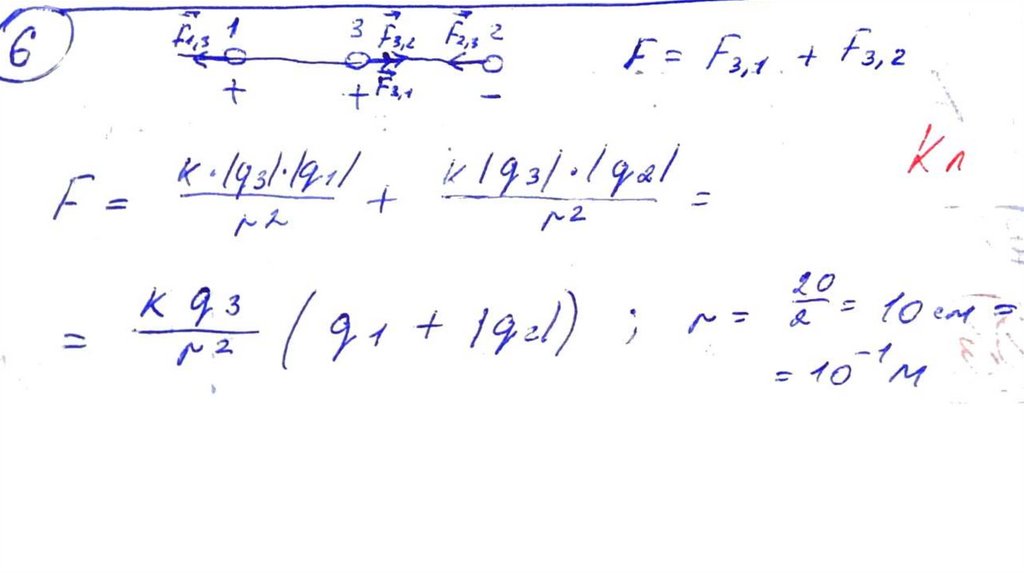 6
F⃗1,3 1 3 F⃗3,2 F⃗2,3 2
F = F3,1 + F3,2
+ + F⃗3,1 -
Кл
F = к·|q3|·|q1| / r² + к|q3|·|q2| / r² =
= к q3 / r² (q1 + |q2|) ; r = 20/2 = 10 см =
= 10⁻¹ м